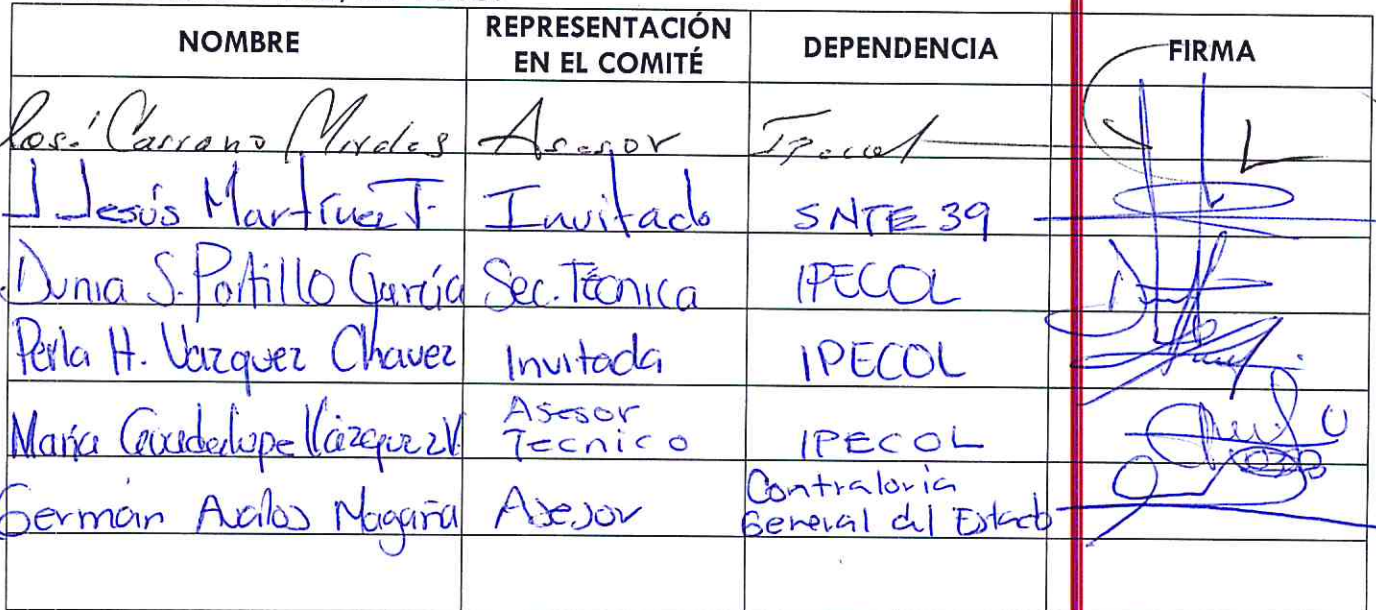 NOMBRE
REPRESENTACIÓN
EN EL COMITÉ
DEPENDENCIA
FIRMA
José Asesor Ipecol
J Jesús Martínez T. Invitado SNTE 39
Dunia S. Portillo García Sec. Técnica IPECOL
Perla H. Vazquez Chavez Invitada IPECOL
María Guadalupe Vázquez V. Asesor
Tecnico IPECOL
Germán Avalos Magaña Asesor Contraloria
General del Estado